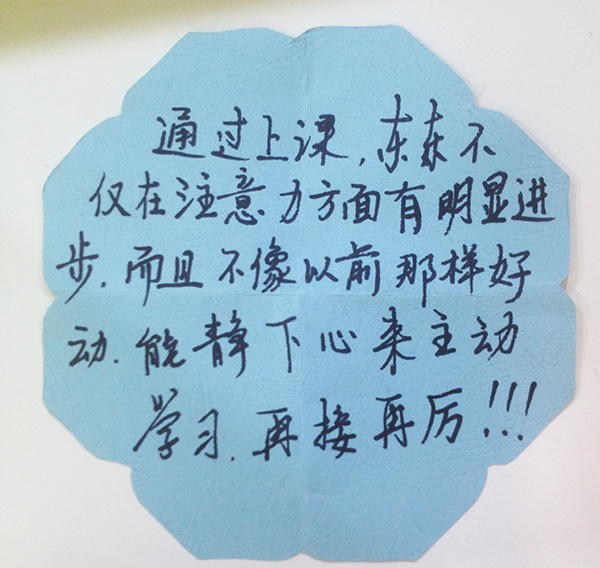 通过上课,东东不
仅在注意力方面有明显进
步.而且不像以前那样好
动.能静下心来主动
学习.再接再厉!!!